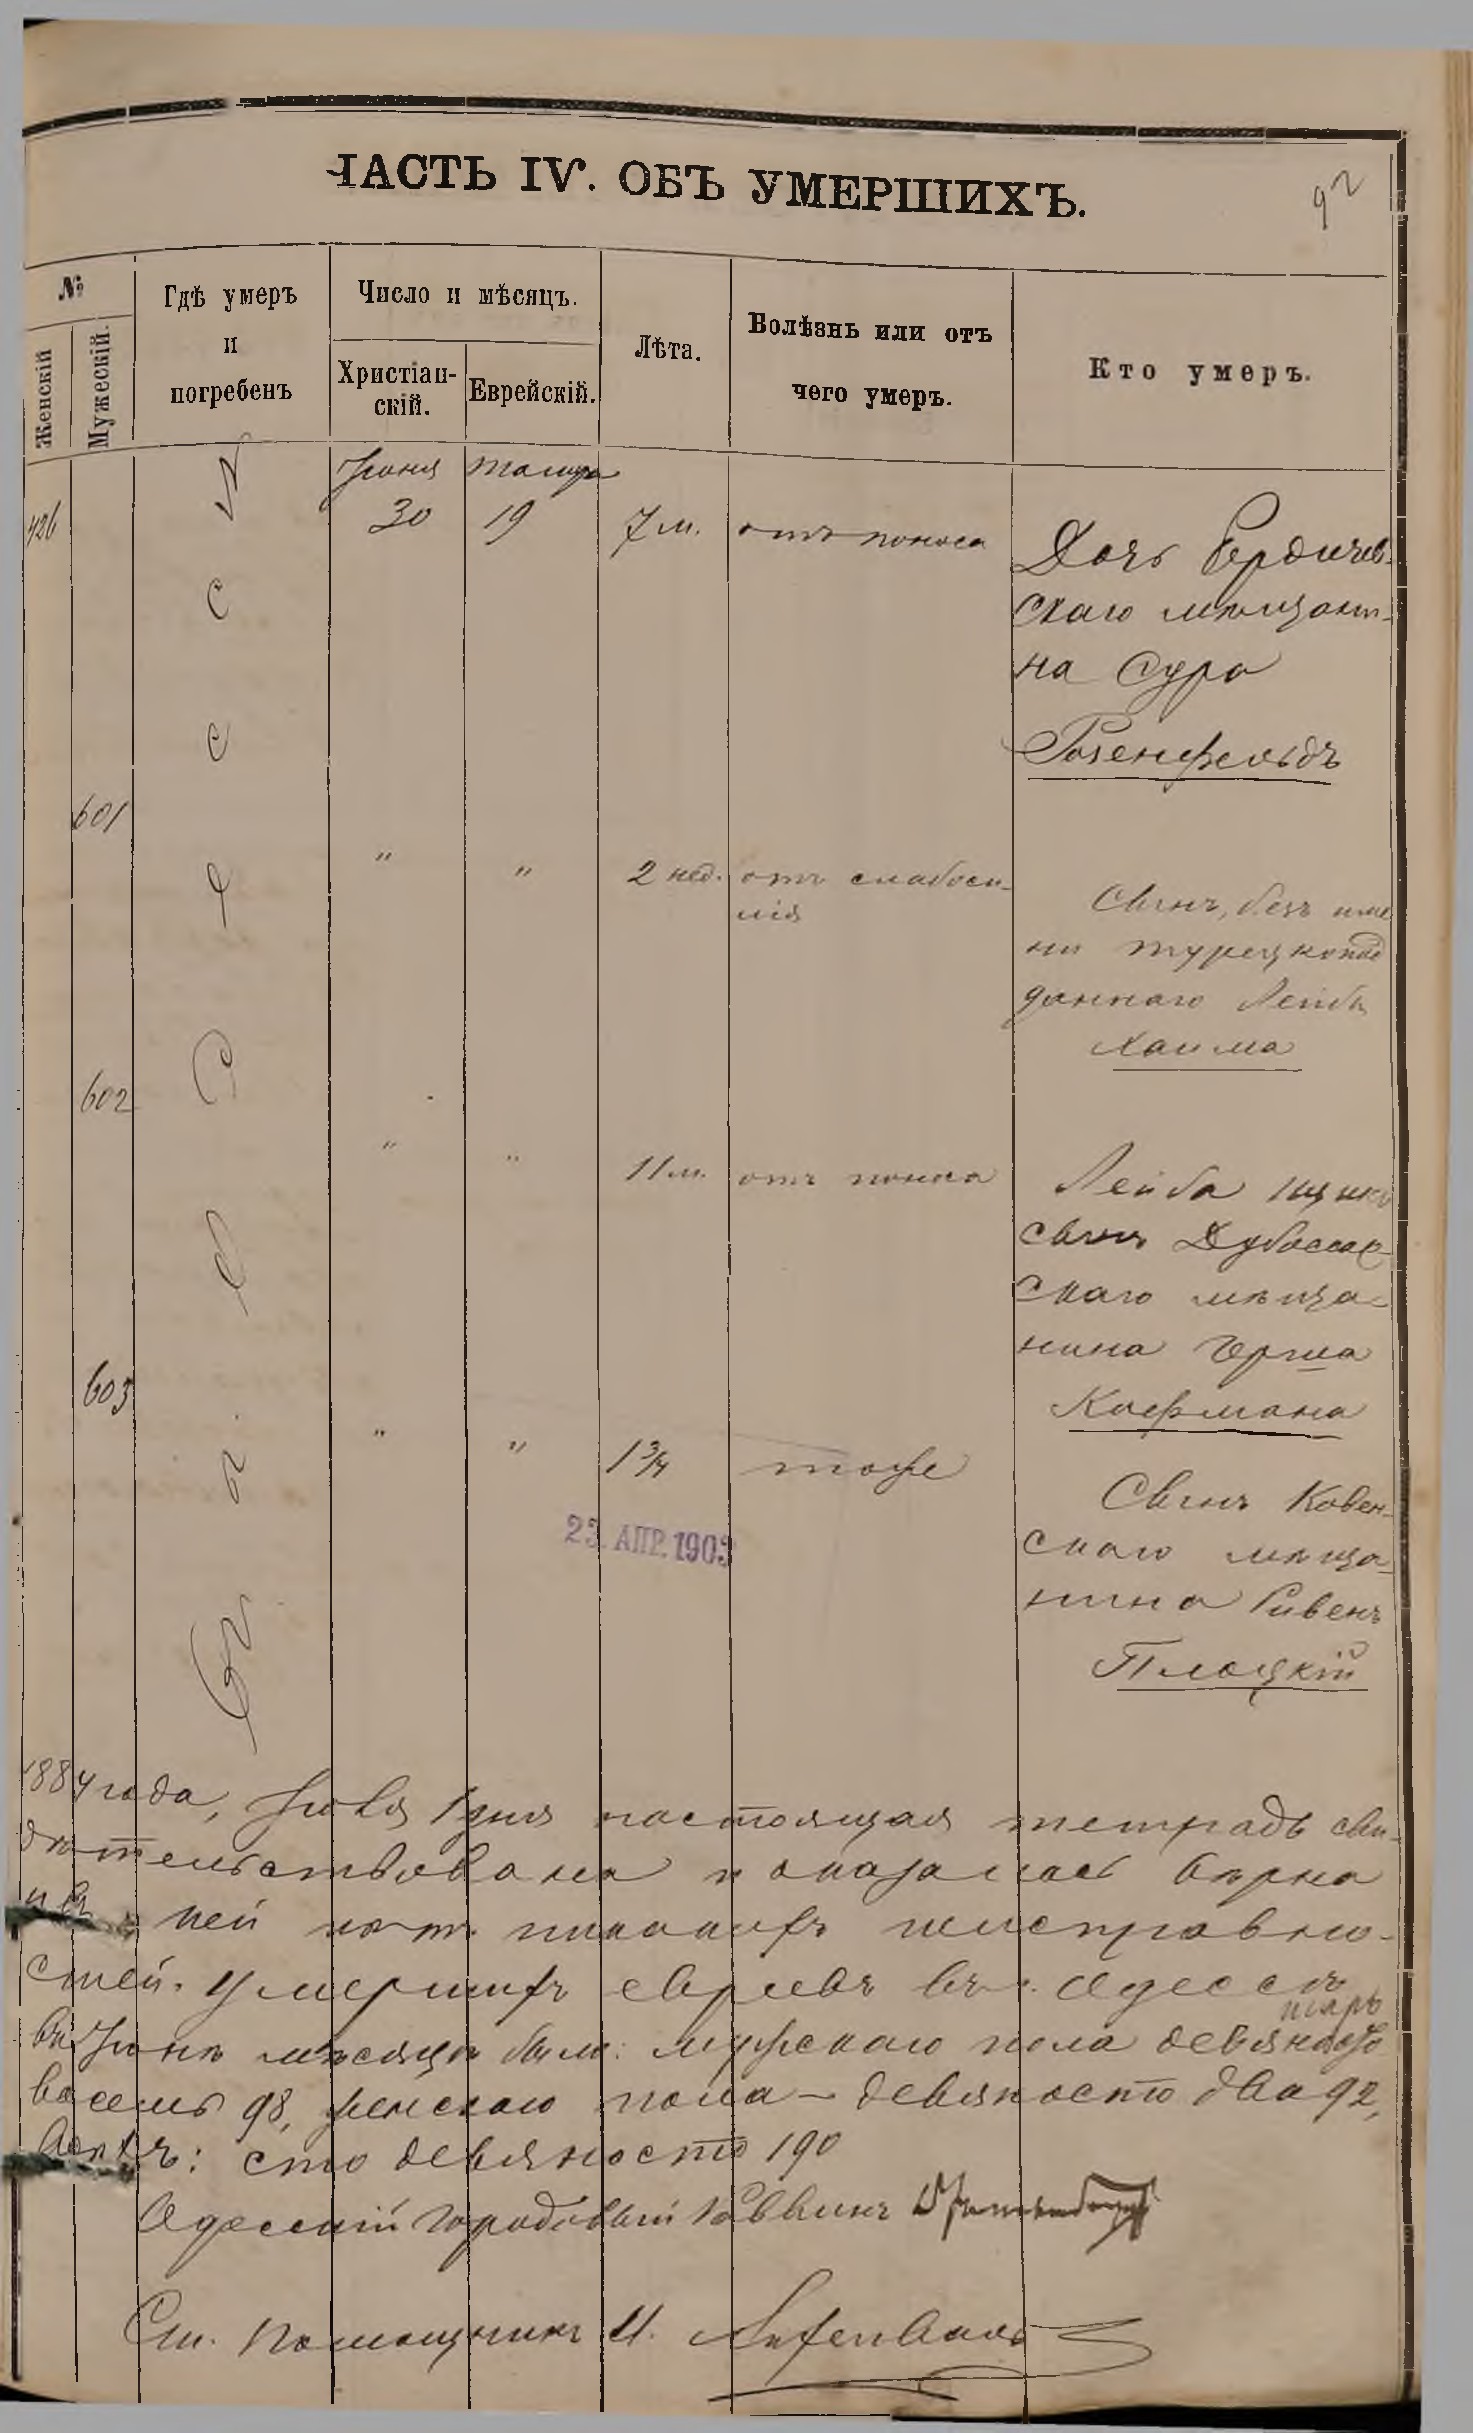 ЧАСТЬ IV. ОБЪ УМЕРШИХЪ.
92
№
Женскій
Мужескій.
Гдѣ умеръ
и
погребенъ
Число и мѣсяцъ.
Христіан-
скій.
Еврейскій.
Лѣта.
Болѣзнь или отъ
чего умеръ.
Кто умеръ.
Іюня
30
19
7 м.
отъ поноса
426
Дочь Бердичев-
скаго мѣщани-
на Сура
Розенфельдъ
601
" " 2 нед. отъ слабоси-
лія
Сынъ, безъ име
ни турецкопод
даннаго Лейбы
Хаима
602
" " 11 м. отъ поноса
Лейба
сынъ Дубоссар-
скаго мѣща-
нина Герша
Кофмана
603
" " 1 3/4 тоже
Сынъ Ковен-
скаго мѣща-
нина Рувенъ
Плоцкій
23. АПР. 1903
1884 года, Іюля 1 дня настоящая тетрадь сви-
дѣтельствована и оказалась вѣрна
и въ ней нѣтъ никакихъ неисправно-
стей. Умершихъ евреевъ въ г. Одессѣ
въ Іюнѣ мѣсяцѣ было: мужскаго пола девяносто
восемь 98, женскаго пола – девяносто два 92,
всѣхъ: сто девяносто 190
Одесскій Городовый Раввинъ
Ст. Помощникъ И.